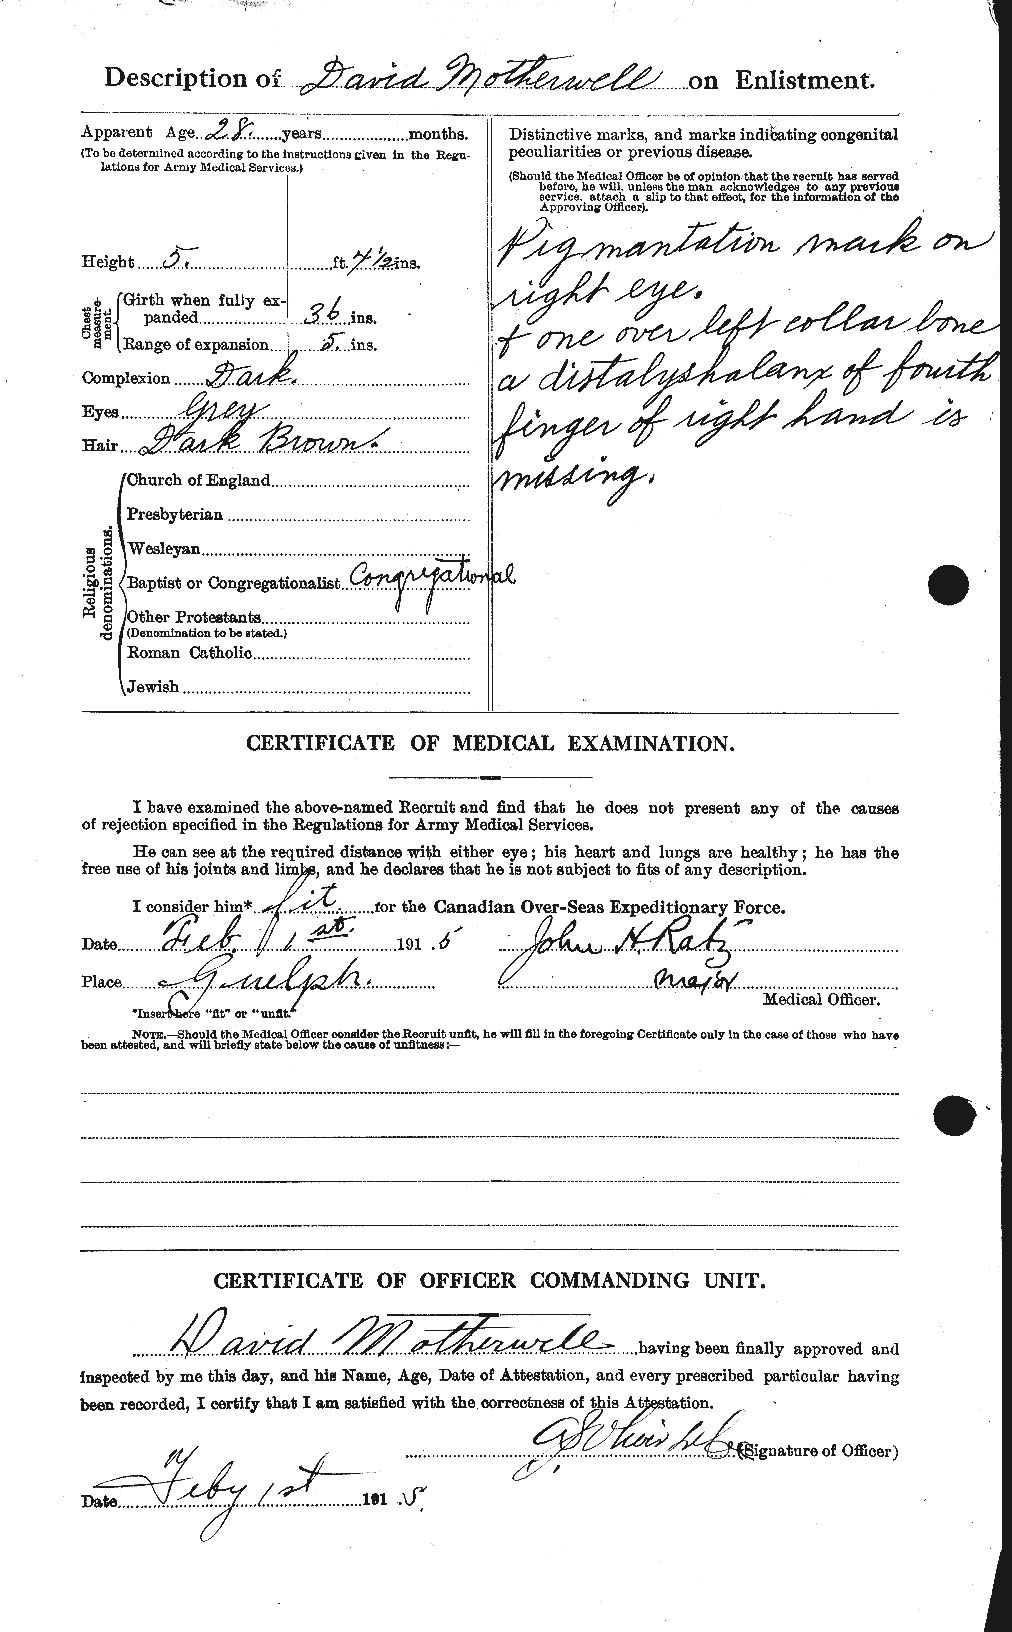 Description of David Motherwell on Enlistment.
Apparent Age 28 years months.
(To be determined according to the instructions given in the Regu-
lations for Army Medical Services.)
Height 5 ft. 4 1/2 ins.
Chest measure-ment.
Girth when fully ex-
panded 36 ins.
Range of expansion 5 ins.
Complexion Dark.
Eyes Grey
Hair Dark Brown.
Religious denominations.
Church of England
Presbyterian
Wesleyan
Baptist or Congregationalist Congregational
Other Protestants
(Denomination to be stated.)
Roman Catholic
Jewish
Distinctive marks, and marks indicating congenital
peculiarities or previous disease.
(Should the Medical Officer be of opinion that the recruit has served
before, he will, unless the man acknowledges to any previous
service, attach a slip to that effect, for the information of the
Approving Officer).
Pigmantation mark on
right eye.
+ one over left collar bone
a distalyshalanx of fourth
finger of right hand is
missing.
CERTIFICATE OF MEDICAL EXAMINATION.
I have examined the above-named Recruit and find that he does not present any of the causes
of rejection specified in the Regulations for Army Medical Services.
He can see at the required distance with either eye; his heart and lungs are healthy; he has the
free use of his joints and limbs, and he declares that he is not subject to fits of any description.
I consider him* fit for the Canadian Over-Seas Expeditionary Force.
Date Feb. 1st. 191 5 John N. Ratz
Place Guelph. Major
Medical Officer.
*Insert here "fit" or "unfit."
NOTE.—Should the Medical Officer consider the Recruit unfit, he will fill in the foregoing Certificate only in the case of those who have
been attested, and will briefly state below the cause of unfitness:—
CERTIFICATE OF OFFICER COMMANDING UNIT.
David Motherwell having been finally approved and
inspected by me this day, and his Name, Age, Date of Attestation, and every prescribed particular having
been recorded, I certify that I am satisfied with the correctness of this Attestation.
(Signature of Officer)
Date Feby 1st 191 5